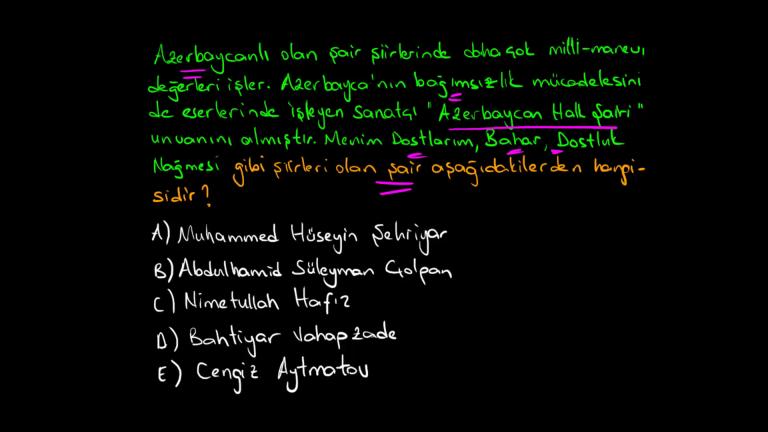 Azerbaycanlı olan şair şiirlerinde daha çok milli-manevi
değerleri işler. Azerbayca'nın bağımsızlık mücadelesini
de eserlerinde işleyen sanatçı "Azerbaycan Halk Şairi"
unvanını almıştır. Menim Dostlarım, Bahar, Dostluk
Nağmesi gibi şiirleri olan şair aşağıdakilerden hangi-
sidir?
A) Muhammed Hüseyin Şehriyar
B) Abdulhamid Süleyman Çolpan
C) Nimetullah Hafız
D) Bahtiyar Vahapzade
E) Cengiz Aytmatov